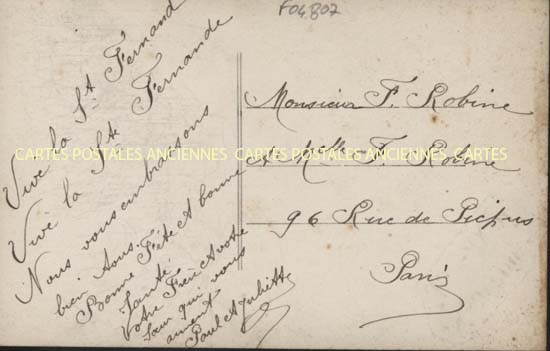 F04807
Vive la St Fernand
Vive la Ste Fernande
Nous vous embrassons
bien tous.
Bonne Fête et bonne
Santé
Votre Frère et votre
Sœur qui vous
aiment
Paul et Juliette
Monsieur F. Robine
et Melle F. Robine
96 Rue de Picpus
Paris
CARTES POSTALES ANCIENNES CARTES POSTALES ANCIENNES CARTES